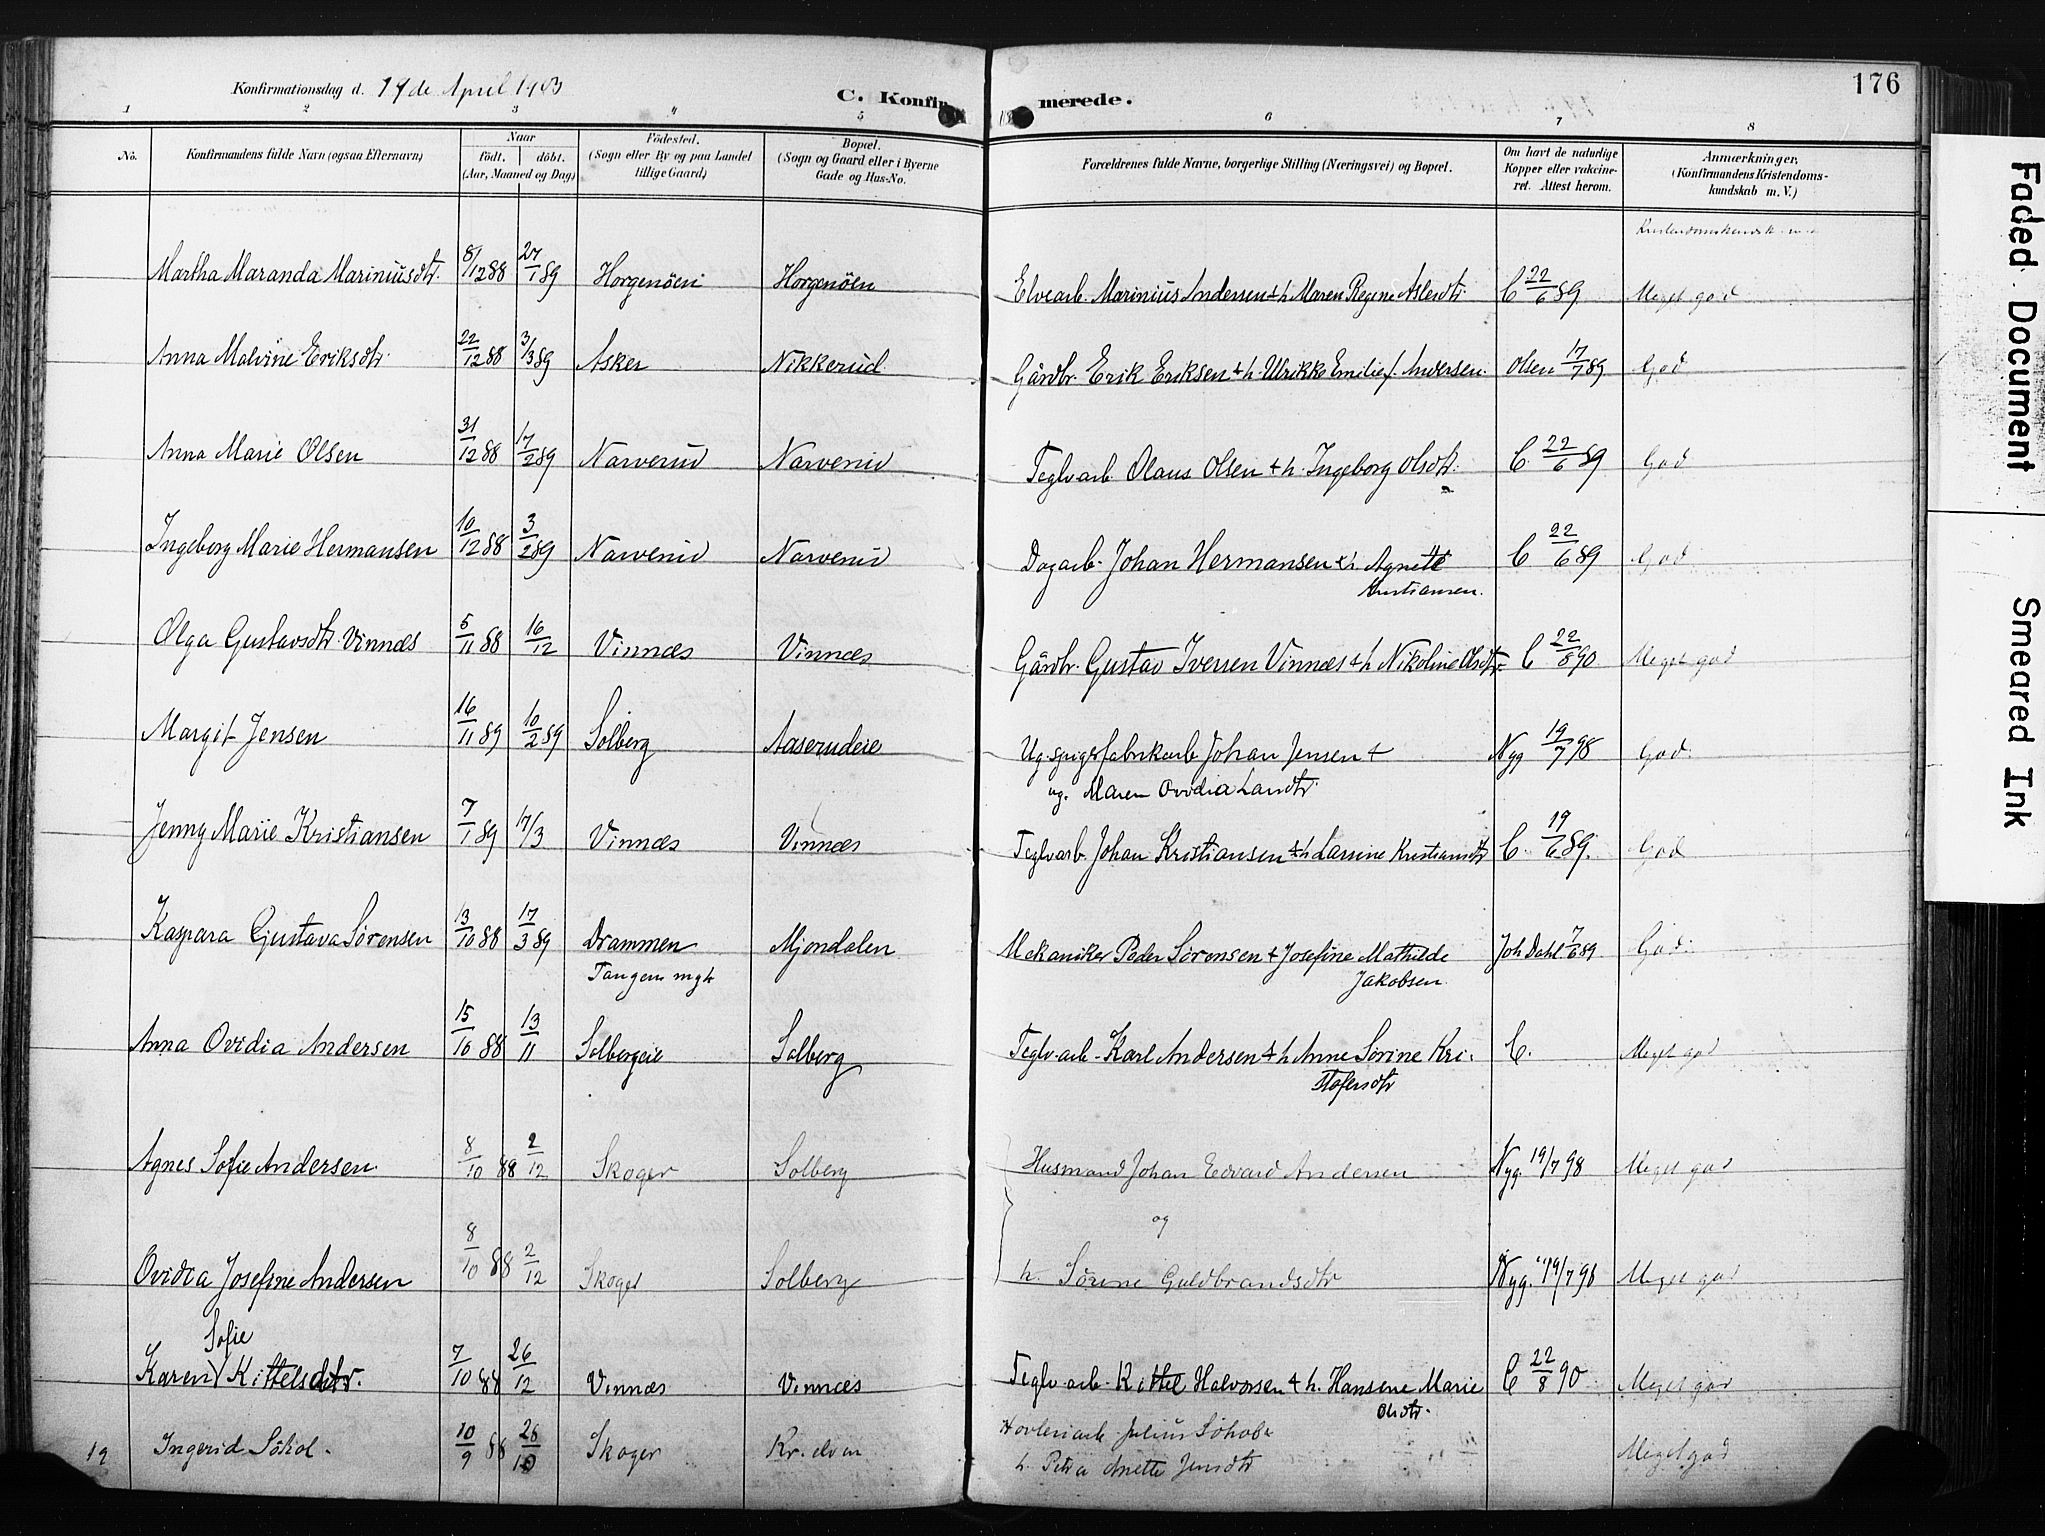 Konfirmationsdag d. 19 de April 1903
C. Konfirmerede.
176
1 2 3 4 5 6 7 8
No.
Konfirmandens fulde Navn (ogsaa Efternavn)
Naar
födt. döbt.
(Aar, Maaned og Dag)
Födested.
(Sogn eller By og paa Landet
tillige Gaard)
Bopæl.
(Sogn og Gaard eller i Byerne
Gade og Hus-No.
Forældrenes fulde Navne, borgerlige Stilling (Næringsvei) og Bopæl.
Om havt de naturlige
Kopper eller vakcine-
ret. Attest herom.
Anmærkninger,
(Konfirmandens Kristendoms-
kundskab m. V.)
Martha Maranda Mariniusdtr. 8/12 88 27/1 89 Horgenöen Horgenöen Elvearb. Marinius Andersen & h. Maren Regine Aslesdtr. C 22/6 89 Meget god
Anna Malvine Eriksdtr. 22/12 88 3/3 89 Asker Nikkerud Gårdbr. Erik Eriksen & h. Ulrikke Emilie f. Andersen Olsen 17/7 89 God
Anna Marie Olsen 31/12 88 17/2 89 Narverud Narverud Teglv.arb. Olaus Olsen & h. Ingeborg Olsdtr. C. 22/6 89 God
Ingeborg Marie Hermansen 10/12 88 3/2 89 Narverud Narverud Dagarb. Johan Hermansen & h. Agnette
Kristiansen.
C 22/6 89 God
Olga Gustavsdtr. Vinnæs 5/11 88 16/12 Vinnæs Vinnæs Gårdbr. Gustav Iversen Vinnæs & h. Nikoline Olsdtr. C 22/8 90 Meget god
Margit Jensen 16/11 89 10/2 89 Solberg Aaserudeie Ug. spigerfabrikarb. Johan Jensen &
ug. Maren Ovidia Larsdtr.
Nyg 19/7 98 God.
Jenny Marie Kristiansen 7/1 89 17/3 Vinnæs Vinnæs Teglv.arb. Johan Kristiansen & h. Larsine Kristiansdtr C. 19/6 89. God
Kaspara Gustava Sörensen 13/10 88 17/3 89 Drammen
Tangens mgh
Mjondalen Mekaniker Peder Sörensen & Josefine Mathilde
Jakobsen.
Joh. Dahl 7/6 89 God.
Anna Ovidia Andersen 15/10 88 13/11 Solbergeie Solberg Teglv. arb. Karl Andersen & h. Anne Sörine Kri-
stofersdtr
C. Meget god
Agnes Sofie Andersen 8/10 88 2/12 Skoger Solberg Husmand Johan Edvard Andersen Nyg. 19/7 98 Meget god
og
Ovidia Josefine Andersen 8/10 88 2/12 Skoger Solberg h. Sörine Guldbrandsdtr Nyg. 19/7 98 Meget god
Sofie
Karen Kittelsdtr. 7/10 88 26/12 Vinnæs Vinnæs Teglv. arb. Kittel Halvorsen & h. Hansine Marie
Olsdtr.
C 22/8 90 Meget god
12 Ingerid Sökol. 10/9 88 26/10 Skoger Kr. elven Hövleriarb. Julius
h. Petra Anette Jensdtr
Meget god
Faded Document
Smeared Ink